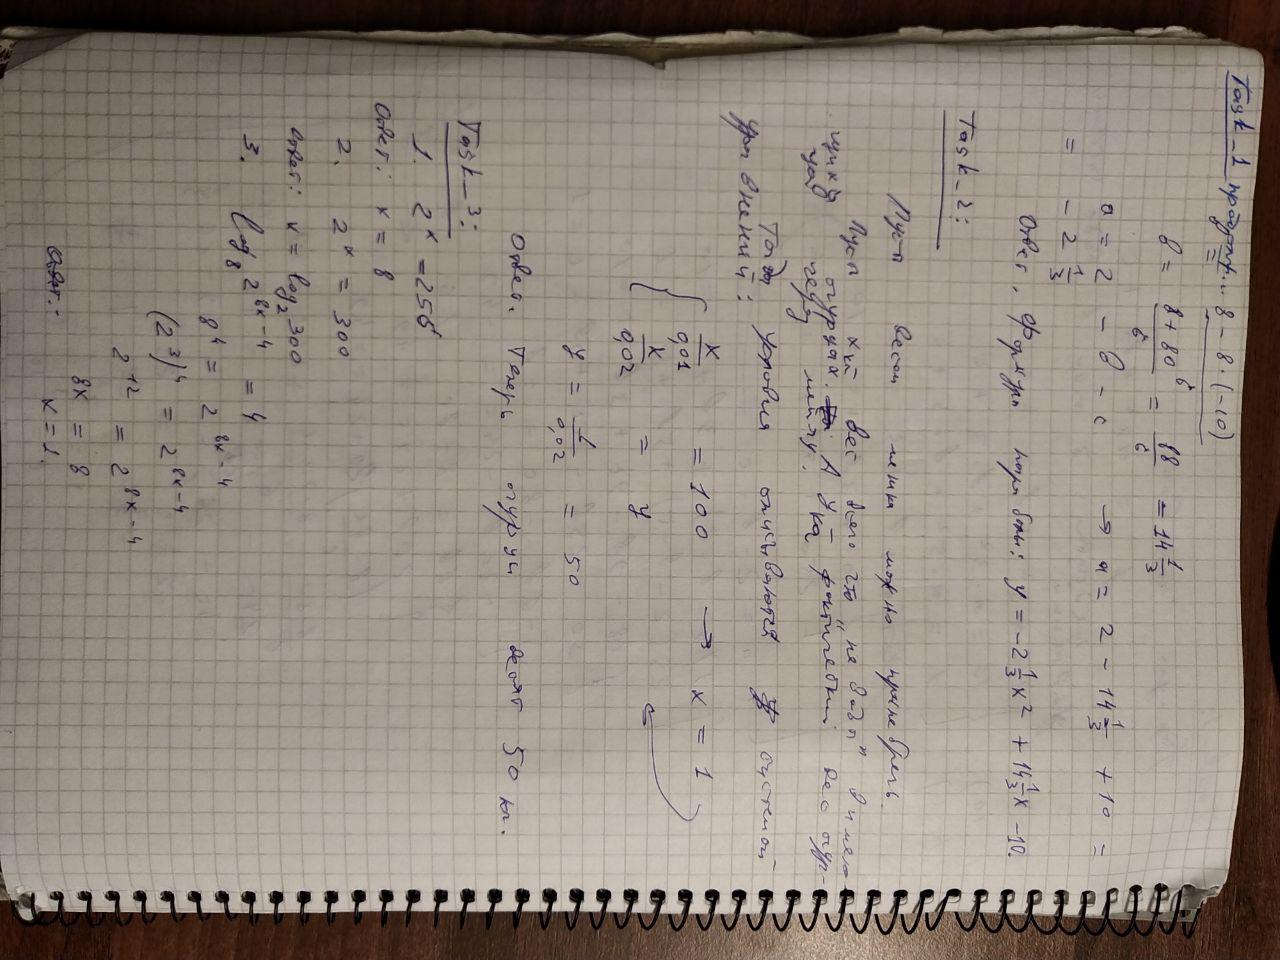 Task_1 продолж... 8 - 8 · (-10)
в =
в = (8 + 80)/6 = 88/6 = 14 1/3
a = 2 - в - c → a = 2 - 14 1/3 + 10 =
= - 2 1/3
Ответ. Формула параболы: y = -2 1/3 x² + 14 1/3 x - 10.
Task_2:
Пусть весом мешка можно пренебречь.
Пусть x кг вес всего что „не вода" в имею-
щихся огурцах. А y кг фактический вес огур-
цов через неделю.
Тогда условия описываются системой
уравнений:
{ x/0,01 = 100 → x = 1
x/0,02 = y
y = 1/0,02 = 50
Ответ. Теперь огурцы весят 50 кг.
Task_3:
1. 2^x = 256
Ответ: x = 8
2. 2^x = 300
Ответ: x = log₂ 300
3. log₈ 2^(8x-4) = 4
8^4 = 2^(8x-4)
(2^3)^4 = 2^(8x-4)
2^12 = 2^(8x-4)
8x = 8
Ответ.- x = 1.